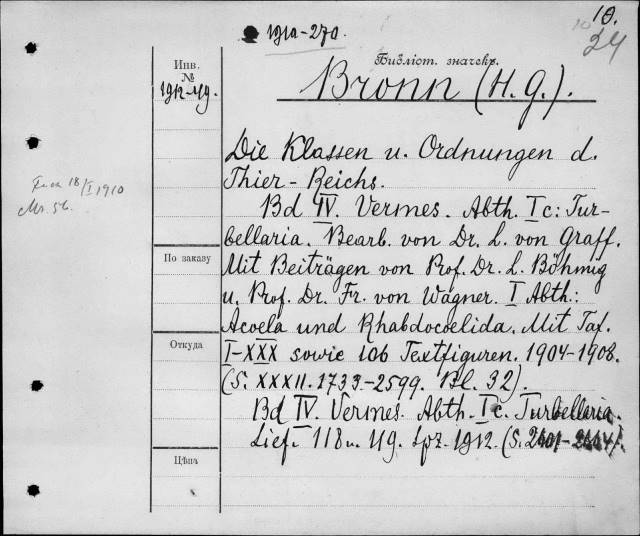 10.
24
1910-270.
Библіот. значекъ.
Инв.
№
1912-119.
Bronn (H. G.).
Die Klassen u. Ordnungen d.
Thier-Reichs.
Bd IV. Vermes. Abth. Ic: Tur-
bellaria. Bearb. von Dr. L. von Graff.
18/I 1910
По заказу
Mit Beiträgen von Prof. Dr. L. Böhmig
u. Prof. Dr. Fr. von Wagner. I Abth.:
Acoela und Rhabdocoelida. Mit Taf.
Откуда
I-XXX sowie 106 Textfiguren. 1904-1908.
(S. XXXII. 1733-2599. Bl. 32).
Bd IV. Vermes. Abth. Ic. Turbellaria.
Lief. 118 u. 119. Lpz. 1912. (S.
Цѣна